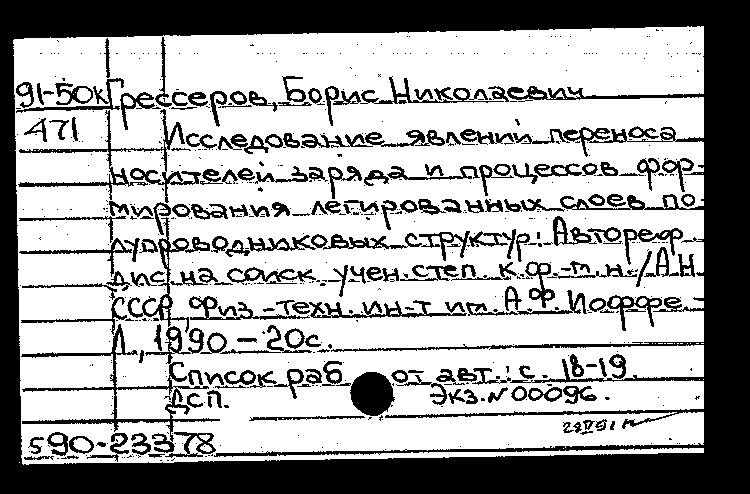 91-50к Грессеров, Борис Николаевич
471 Исследование явлений переноса
носителей заряда и процессов фор-
мирования легированных слоев по-
лупроводниковых структур: Автореф.
дис. на соиск. учен. степ. к.ф.-м.н. / АН
СССР, Физ.-техн. ин-т им. А.Ф. Иоффе.-
Л., 1990.-20с.
Список раб. от авт.: с. 18-19.
ДСП. Экз. N 00096.
590-23378